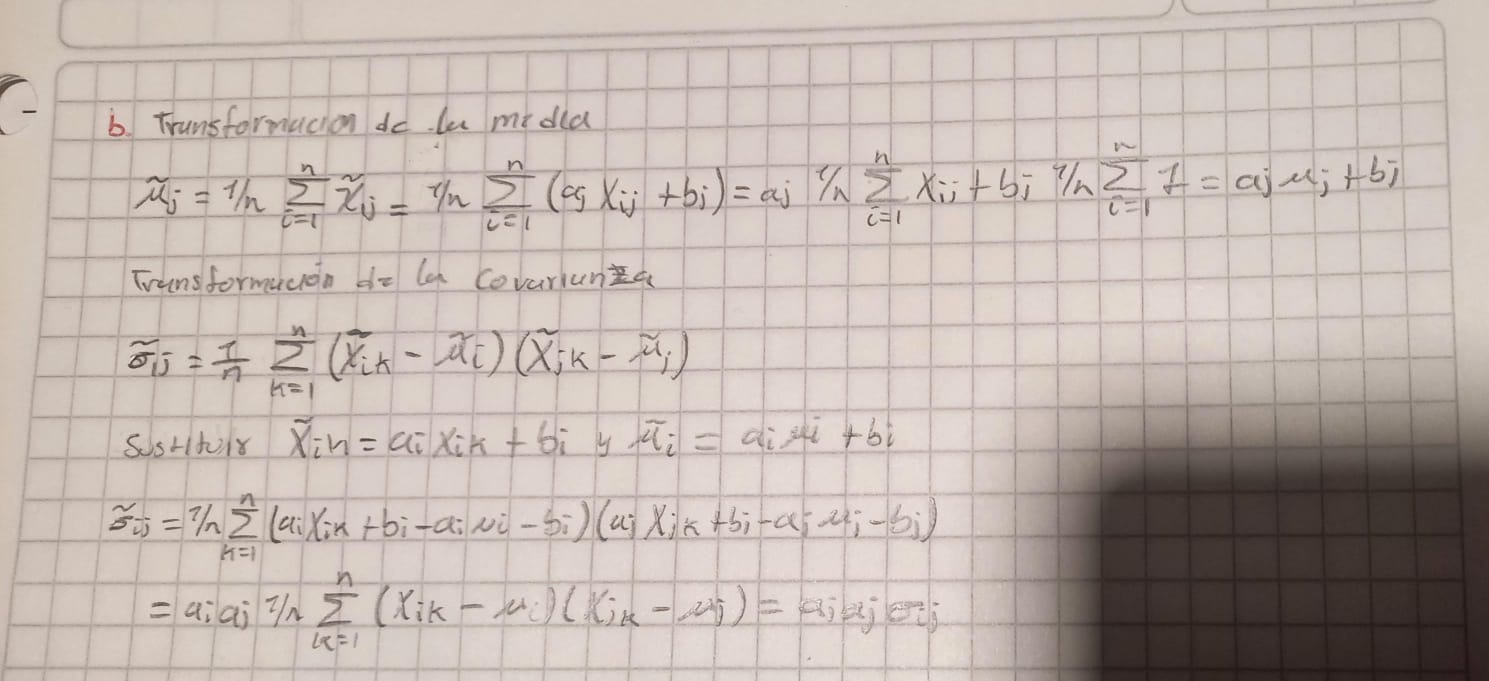 b. Transformación de la media
μ̃j = 1/n Σ_{i=1}^{n} x̃ij = 1/n Σ_{i=1}^{n} (aj Xij + bj) = aj 1/n Σ_{i=1}^{n} Xij + bj 1/n Σ_{i=1}^{n} 1 = aj μj + bj
Transformación de la Covarianza
σ̃ij = 1/n Σ_{k=1}^{n} (X̃ik − μ̃i) (X̃jk − μ̃j)
Sustituir X̃ik = ai Xik + bi y μ̃i = ai μi + bi
σ̃ij = 1/n Σ_{k=1}^{n} (ai Xik + bi − ai μi − bi) (aj Xjk + bj − aj μj − bj)
= ai aj 1/n Σ_{k=1}^{n} (Xik − μi) (Xjk − μj) = ai aj σij